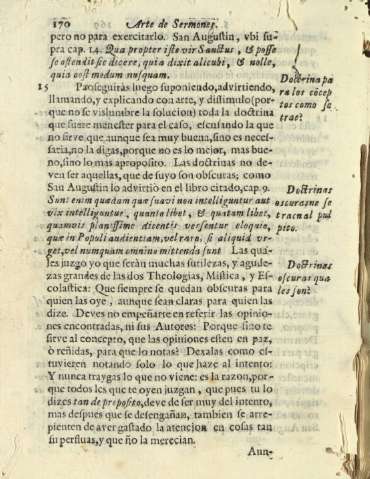 170 Arte de Sermones.
pero no para exercitarlo. San Augustin, vbi su-
pra cap. 14. Qua propter iste vir Sanctus, & posse
se ostendit sic dicere, quia dixit alicubi, & nolle,
quia post modum nusquam.
15 Proseguiràs luego suponiendo, advirtiendo,
llamando, y explicando con arte, y dissimulo (por-
que no se vislumbre la solucion) toda la doctrina
que fuere menester para el caso, escusando la que
no sirve que aunque sea muy buena, sino es neces-
saria, no la digas, porque no es lo mejor, mas bue-
no, sino lo mas aproposito. Las doctrinas no de-
ven ser aquellas, que de suyo son obscuras; como
San Augustin lo advirtiò en el libro citado, cap. 9.
Sunt enim quædam quæ suavi non intelliguntur aut
vix intelliguntur, quanto libet, & quatum libet,
quamvis planissime dicentis versentur eloquio,
quæ in Populi audientiam, vel rara, si aliquid vr-
get, vel numquam omnino mittenda sunt Las qua-
les juzgo yo que seràn muchas sutilezas, y agude-
zas grandes de las dos Theologias, Mistica, y Es-
colastica: Que siempre se quedan obscuras para
quien las oye, aunque sean claras para quien las
dize. Deves no empeñarte en referir las opinio-
nes encontradas, ni sus Autores: Porque sino te
sirve al concepto, que las opiniones esten en paz,
ò reñidas, para que lo notas? Dexalas como es-
tuvieren notando solo lo que haze al intento:
Y nunca traygas lo que no viene: es la razon, por-
que todos los que te oyen juzgan, que pues tu lo
dizes tan de proposito, deve de ser muy del intento,
mas despues que se desengañan, tambien se arre-
pienten de aver gastado la atencion en cosas tan
superfluas, y que no la merecian.
Aun-
Doctrina pa
ra los cōcep
tos como se
trae?
Doctrinas
oscuras ne se
traen al pul
pito.
Doctrinas
oscuras qua
les son?